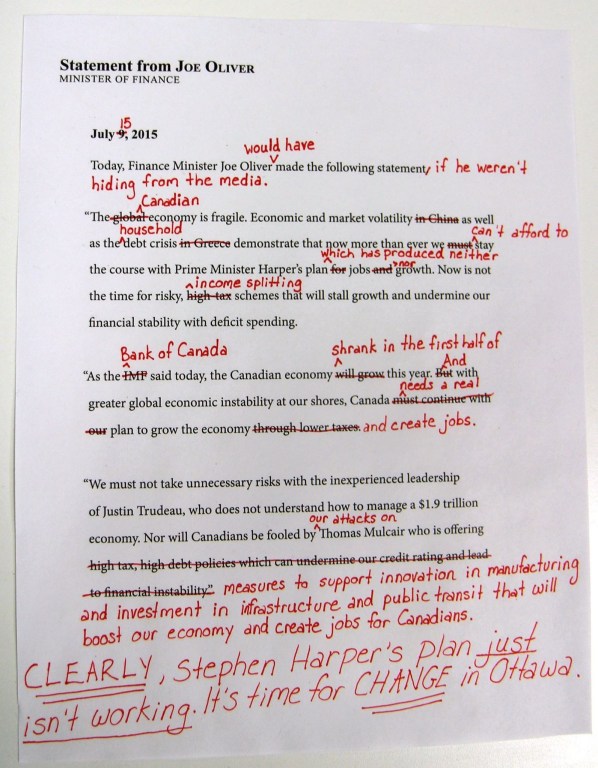 Statement from JOE OLIVER
MINISTER OF FINANCE
15
July 9, 2015
would have
Today, Finance Minister Joe Oliver made the following statement, if he weren't
hiding from the media.
Canadian
“The global economy is fragile. Economic and market volatility in China as well
household can't afford to
as the debt crisis in Greece demonstrate that now more than ever we must stay
which has produced neither
the course with Prime Minister Harper's plan for jobs and nor growth. Now is not
income splitting
the time for risky, high-tax schemes that will stall growth and undermine our
financial stability with deficit spending.
Bank of Canada shrank in the first half of
“As the IMF said today, the Canadian economy will grow this year. But And with
needs a real
greater global economic instability at our shores, Canada must continue with
our plan to grow the economy through lower taxes. and create jobs.
“We must not take unnecessary risks with the inexperienced leadership
of Justin Trudeau, who does not understand how to manage a $1.9 trillion
our attacks on
economy. Nor will Canadians be fooled by Thomas Mulcair who is offering
high tax, high debt policies which can undermine our credit rating and lead
to financial instability.” measures to support innovation in manufacturing
and investment in infrastructure and public transit that will
boost our economy and create jobs for Canadians.
CLEARLY, Stephen Harper's plan just
isn't working. It's time for CHANGE in Ottawa.